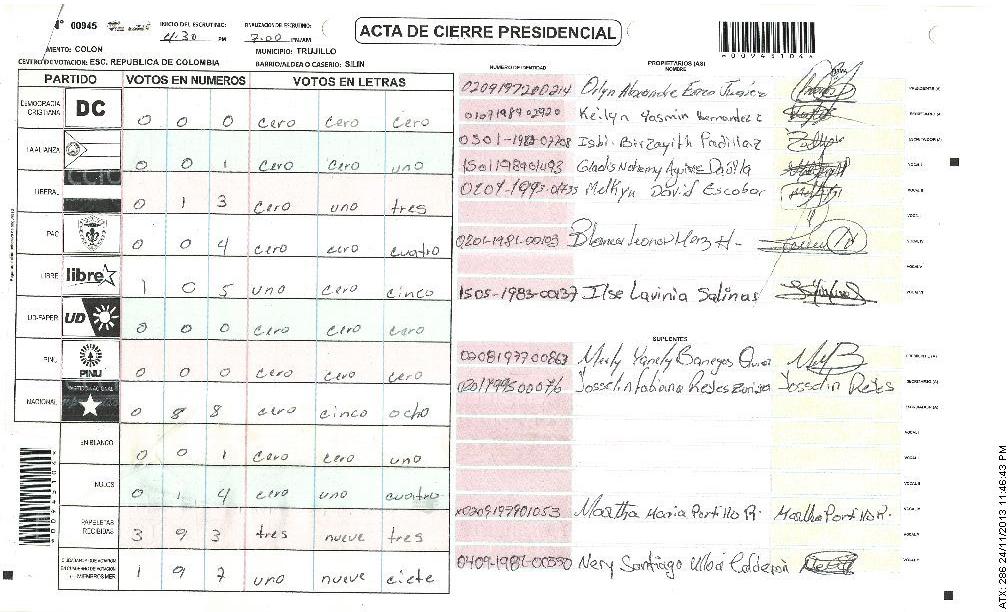 N° 00945 INICIO DEL ESCRUTINIO: 4:30 PM FINALIZACION DEL ESCRUTINIO: 7:00 PM/AM
ACTA DE CIERRE PRESIDENCIAL
MENTO: COLON MUNICIPIO: TRUJILLO
CENTRO DE VOTACION: ESC. REPUBLICA DE COLOMBIA BARRIO/ALDEA O CASERIO: SILIN
PARTIDO VOTOS EN NUMEROS VOTOS EN LETRAS
DEMOCRACIA CRISTIANA DC 0 0 0 cero cero cero
LA ALIANZA 0 0 1 cero cero uno
LIBERAL 0 1 3 cero uno tres
PAC 0 0 4 cero cero cuatro
LIBRE libre 1 0 5 uno cero cinco
UD-FAPER UD 0 0 0 cero cero cero
PINU PINU 0 0 0 cero cero cero
NACIONAL PARTIDO NACIONAL 0 8 8 cero cinco ocho
EN BLANCO 0 0 1 cero cero uno
NULOS 0 1 4 cero uno cuatro
PAPELETAS RECIBIDAS 3 9 3 tres nueve tres
1 9 7 uno nueve ciete
NUMERO DE IDENTIDAD PROPIETARIOS (AS) NOMBRE FIRMA
0209197200214 Orlyn Alexander PRESIDENTE (A)
Keilyn Yasmin Hernandez SECRETARIO (A)
Isbi Birzayith Padilla ESCRUTADOR (A)
VOCAL I
0209-1993-01735 Melkyn David Escobar VOCAL II
0201-1981-00103 Blanca Leonor VOCAL IV
VOCAL V
1505-1983-00137 Ilse Lavinia Salinas
SUPLENTES
0208197700863 PRESIDENTE (A)
Josselin Fabiana Reyes Josselin Reyes SECRETARIO (A)
ESCRUTADOR (A)
VOCAL I
VOCAL II
0209197901053 Martha Maria Portillo R. Martha Portillo R.
VOCAL V
Nery Santiago Ulloa Calderon
00945106
ATX: 286 24/11/2013 11:46:43 PM